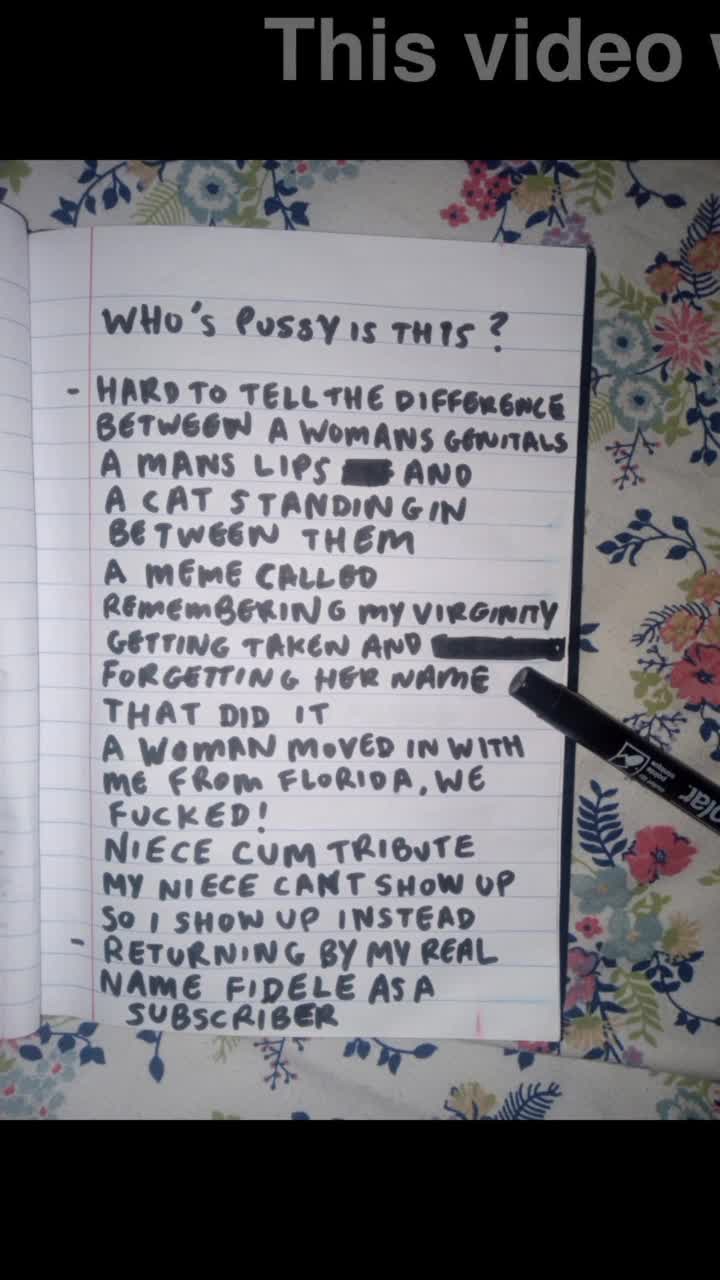 This video
WHO'S PUSSY IS THIS?
- HARD TO TELL THE DIFFERENCE
BETWEEN A WOMANS GENITALS
A MANS LIPS AND
A CAT STANDING IN
BETWEEN THEM
A MEME CALLED
REMEMBERING MY VIRGINITY
GETTING TAKEN AND
FORGETTING HER NAME
THAT DID IT
A WOMAN MOVED IN WITH
ME FROM FLORIDA, WE
FUCKED!
NIECE CUM TRIBUTE
MY NIECE CANT SHOW UP
SO I SHOW UP INSTEAD
- RETURNING BY MY REAL
NAME FIDELE AS A
SUBSCRIBER